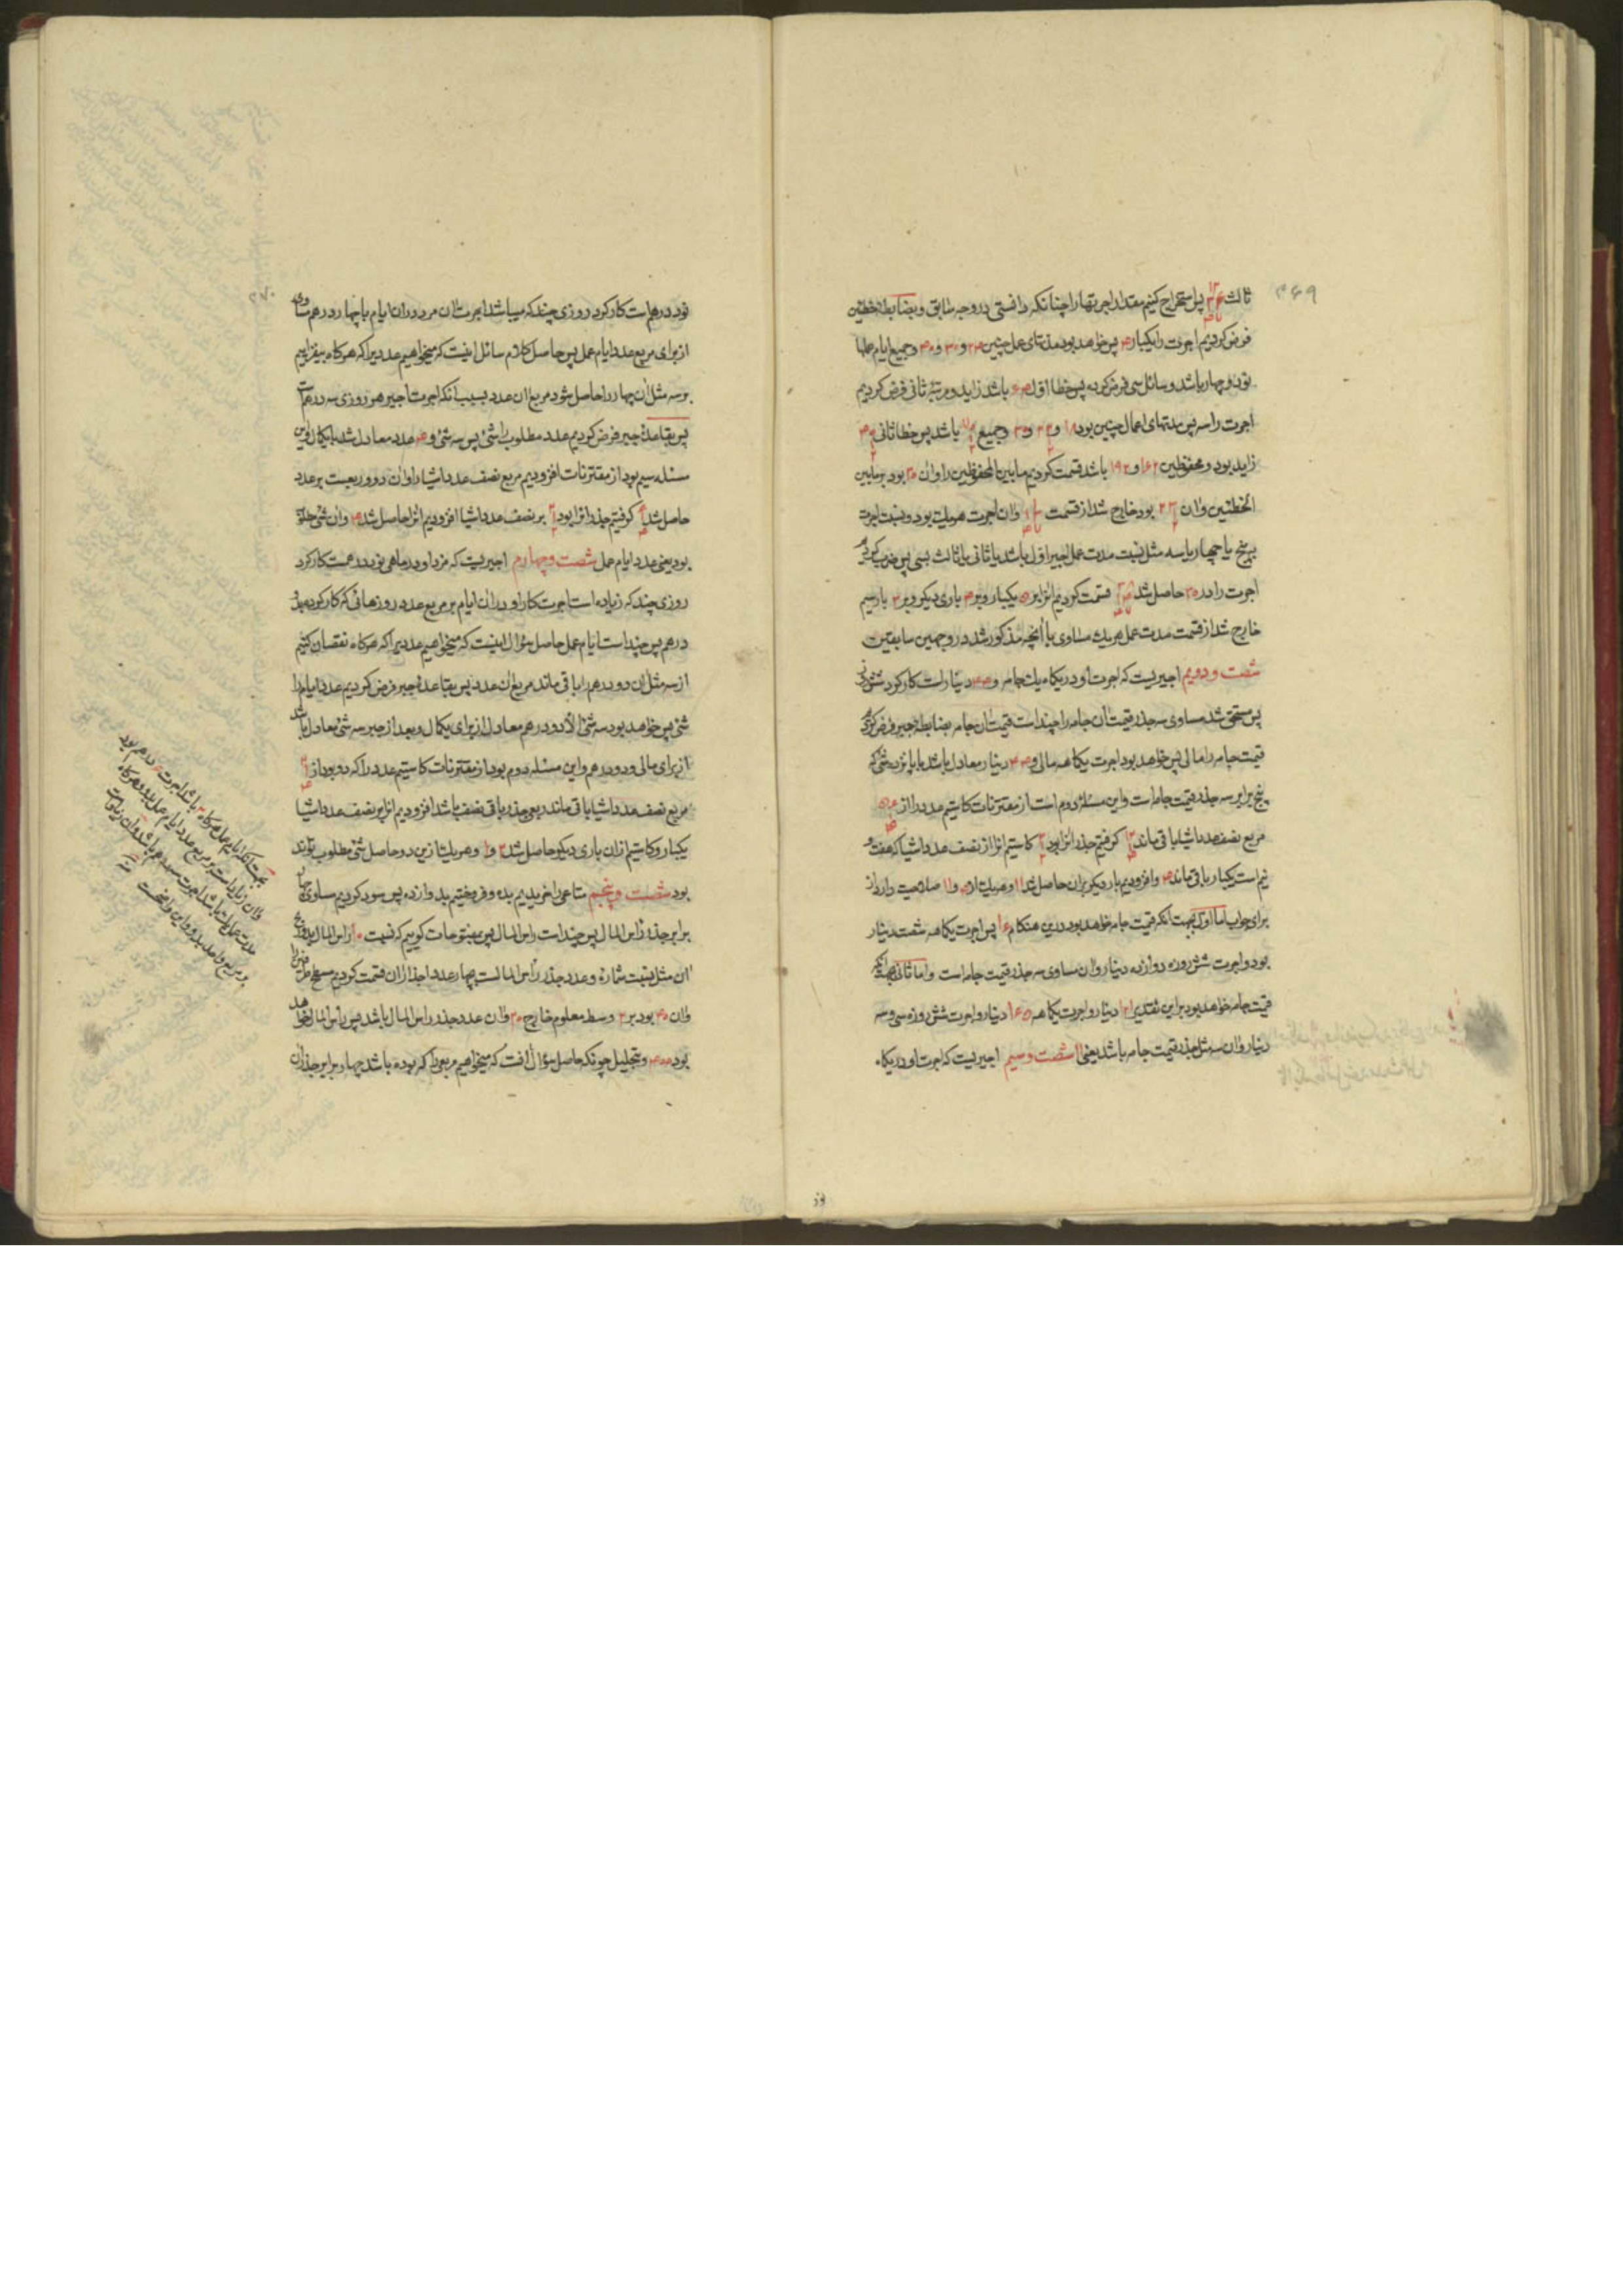 ۳۶۹
ثالث پس استخراج کنیم مقدار اجرتها را چنانکه دانستی در وجه سابق و بضابطه خطئین
فرض کردیم اجرت را یکبار ۴ پس خواهد بود مدتهای عمل چنین ۲۴ و ۳۰ و ۴۰ و جمیع ایام عملها
نود و چهار باشد و سائل سی فرض کرده پس خطا اول ۶۴ باشد زاید و مرتبه ثانی فرض کردیم
اجرت را سه پس مدتهای اعمال چنین بود ۱۸ و و ۳۰ و جمیع باشد پس خطا ثانی
زاید بود و محفوظین ۱۶۲ و ۱۹۲ باشد قسمت کردیم مابین المحفوظین را و ان ۳۰ بود بر مابین
الخطئین و ان بود خارج شد از قسمت و ان اجرت هریک بود و نسبت اجرت
به پنج یا چهار یا سه مثل نسبت مدت عمل اجیر اول باشد یا ثانی یا ثالث بسی پس ضرب کردیم
اجرت را در ۳۰ حاصل شد قسمت کردیم انرا بر ۵ یکبار و بر ۴ باری دیگر و بر ۳ بار سیم
خارج شد از قسمت مدت عمل هریک مساوی با آنچه مذکور شد در وجهین سابقین
شصت و دویم اجیریست که اجرت او در یکماه یک جامه و ۴۴ دینار است کار کرد شش روز
پس مستحق شد مساوی سه جذر قیمت ان جامه را چند است قیمت ان جامه بضابطه جبر فرض کردیم
قیمت جامه را مالی پس خواهد بود اجرت یکماهه مالی و ۴۴ دینار معادل باشد با پانزده شئ که
پنج برابر سه جذر قیمت جامه است و این مسئله دوم است از مقترنات کاستیم عدد را از
مربع نصف عدد اشیا باقی ماند کرفتیم جذر انرا بود کاستیم انرا از نصف عدد اشیا که هفت و
نیم است یکبار باقی ماند ۴ و افزودیم بار دیگر بران حاصل شد ۱۱ و هریک از ۴ و ۱۱ صلاحیت دارد از
برای جواب اما اول بجهت انکه قیمت جامه خواهد بود درین هنکام ۱۶ پس اجرت یکماهه شصت دینار
بود و اجرت شش روزه دوازده دینار و ان مساوی سه جذر قیمت جامه است و اما ثانی بجهت انکه
قیمت جامه خواهد بود براین تقدیر ۱۲۱ دینار و اجرت یکماهه ۱۶۵ دینار و اجرت شش روزه سی و سه
دینار و ان سه مثل جذر قیمت جامه باشد یعنی ۱۱ شصت و سیم اجیریست که اجرت او در یکماه
نود
۳۷۰
نود درهم است کار کرد روزی چند که میباشد اجرت ان مرد دران ایام با چهار درهم مساوی
از برای مربع عدد ایام عمل پس حاصل کلام سائل اینست که میخواهیم عددیرا که هرکاه بیفزاییم
بر سه مثل ان چهار را حاصل شود مربع ان عدد بسبب انکه اجرت اجیر هر روزی سه درهم است
پس بقاعده جبر فرض کردیم عدد مطلوب را شئ پس سه شئ و ۴ عدد معادل شد با یکمال و این
مسئله سیم بود از مقترنات افزودیم مربع نصف عدد اشیا را و ان دو و ربعست بر عدد
حاصل شد کرفتیم جذر انرا بود بر نصف عدد اشیا افزودیم انرا حاصل شد ۴ و ان شئ
بود یعنی عدد ایام عمل شصت و چهارم اجیریست که مزد او در ماهی نود درهمست کار کرد
روزی چند که زیاده است اجرت کار او دران ایام بر مربع عدد روزهائی که کار کرده بدو
درهم پس چند است ایام عمل حاصل سؤال اینست که میخواهیم عددیرا که هرکاه نقصان کنیم
از سه مثل ان دو درهم را باقی ماند مربع ان عدد پس بقاعده جبر فرض کردیم عدد ایام را
شئ پس خواهد بود سه شئ الا دو درهم معادل از برای یکمال و بعد از جبر سه شئ معادل باشد
از برای مالی و دو درهم و این مسئله دوم بود از مقترنات کاستیم عدد را که دو بود از
مربع نصف عدد اشیا باقی ماند ربعی جذر باقی نصف باشد افزودیم انرا بر نصف عدد اشیا
یکبار و کاستیم ازان باری دیکر حاصل شد ۲ و ۱ و هریک ازین دو حاصل شئ مطلوب تواند
بود شصت و پنجم متاعی را خریدیم بده و فروختیم بدوازده پس سود کردیم مساوی چهار
برابر جذر راس المال پس چند است راس المال پس بمفتوحات کوییم که نسبت ۱۰ راس المال بدو ربح
ان مثل نسبت شماره و عدد جذر راس المالست بچهار عدد اجذار ان قسمت کردیم مسطح طرفین را
و ان ۴۰ بود بر ۲ وسط معلوم خارج ۲۰ و ان عدد جذر راس المال باشد پس راس المال خواهد
بود ۴۰۰ و بتحلیل چونکه حاصل سؤال انست که میخواهیم مربعی را که بوده باشد چهار برابر جذر ان
بجهت انکه ایام عمل هرکاه ۲ باشد اجرت ۶ درهم بود
و ان زیاد است بر مربع عدد ایام عمل بدو و هرکاه
مدت عمل یک باشد اجرت سه درهم باشد و ان زیاد است
بر مربع واحد بدو و این واضحست